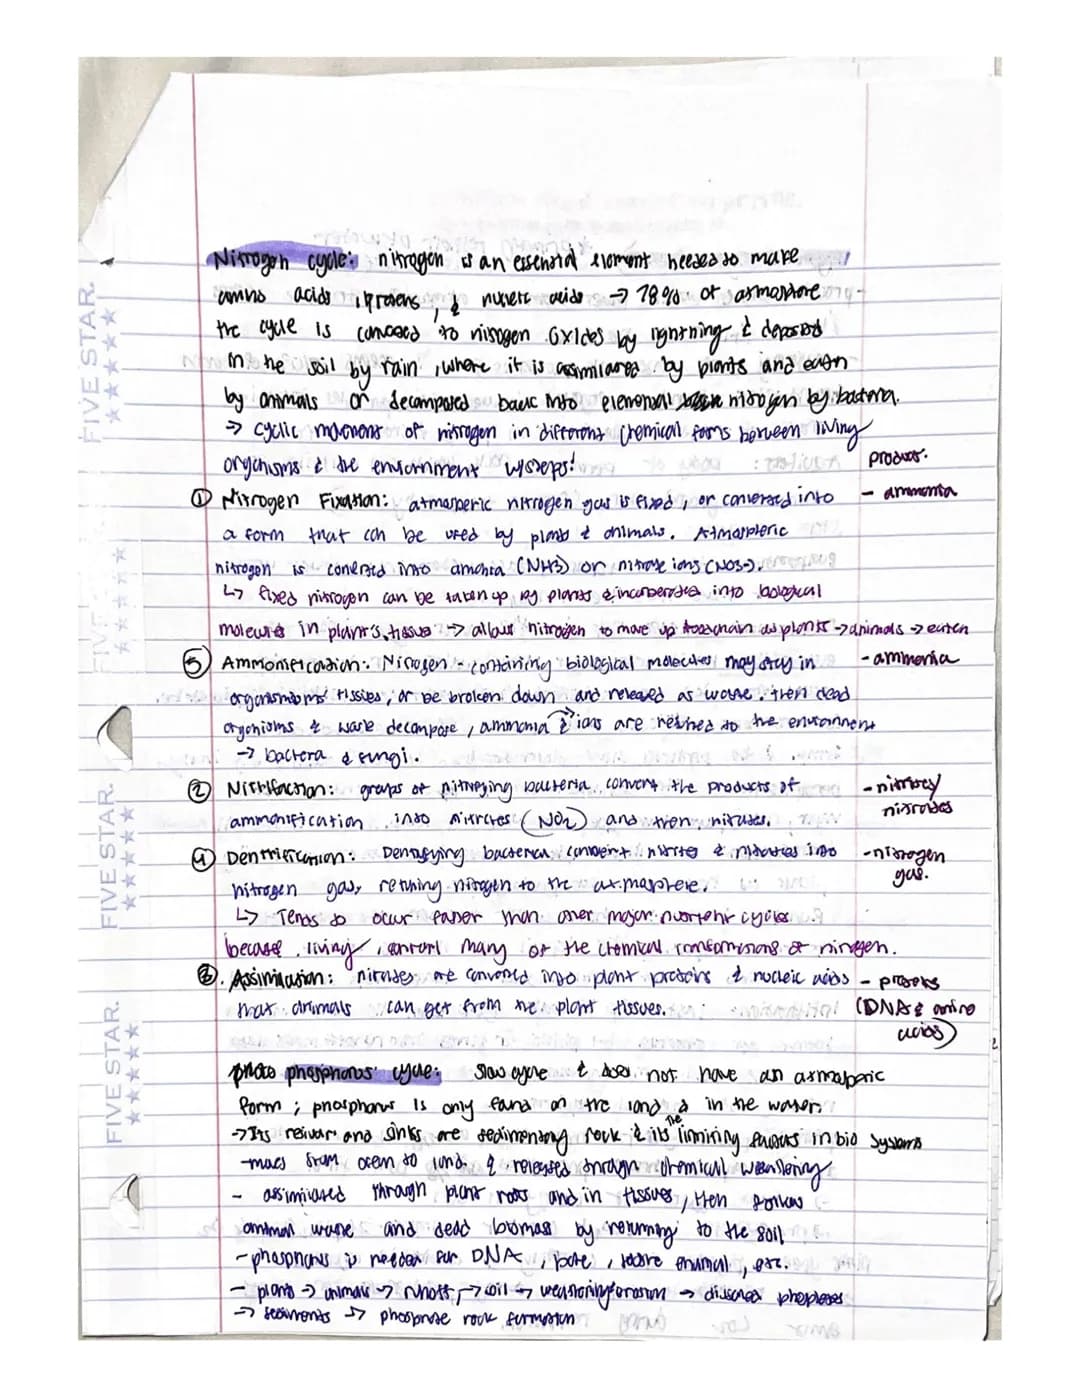 Nitrogen cycle: nitrogen is an essential element needed to make
amino acids, proteins, & nucleic acids → 78% of atmosphere
the cycle is converted to nitrogen oxides by lightning & deposited
in the soil by rain, where it is assimilated by plants and eaten
by animals or decomposed back into elemental nitrogen by bacteria.
→ cyclic movement of nitrogen in different chemical forms between living
organisms & the environment w/steps!
product:
① Nitrogen Fixation: atmospheric nitrogen gas is fixed, or converted into - ammonia
a form that can be used by plants & animals. Atmospheric
nitrogen is converted into amonia (NH3) or nitrate ions (NO3-).
↳ fixed nitrogen can be taken up by plants & incorberated into biological
molecules in plants tissue → allows nitrogen to move up foodchain as plants → animals → eaten
⑤ Ammonification: Nitrogen - containing biological molecules may stay in - ammonia
organisms tissues, or be broken down and released as waste. then dead
organisms & waste decompose, ammonia & ions are retuned to the environment
→ bactera & fungi.
② Nitrification: groups of nitrifying bacteria convert the products of - nitrites/
ammonification into nitrites (NO2) and then nitrates. nitrates
④ Denitrification: Denitrifying bacteria convert nitrites & nitrates into - nitrogen
nitrogen gas, retuning nitrogen to the atmosphere. gas.
↳ Tends to occur faster than other major nutrient cycles
because living control many of the chemical transformations of nitrogen.
③. Assimilation: nitrates are converted into plant proteins & nucleic acids - proteins
that animals can get from the plant tissues. (DNA & amino
acids)
phosphorus cycle: slow cycle & does not have an atmospheric
form; phosphorus is only found on the land & in the water.
→ Its reivar and sinks are sedimentary rock & its the limiting factors in bio systems
- moves from ocean to land & released through chemical weathering
- assimilated through plant roots and in tissues, then follow
animal waste and dead biomass by returning to the soil
- phosphorus is needed for DNA, bone, tooth enamal, etc.
- plants → animals → runoff → soil → weathering/erosion → dissolved phosphates
→ sediments → phosphate rock formation
FIVE STAR.
FIVE STAR.
FIVE STAR.
FIVE STAR.